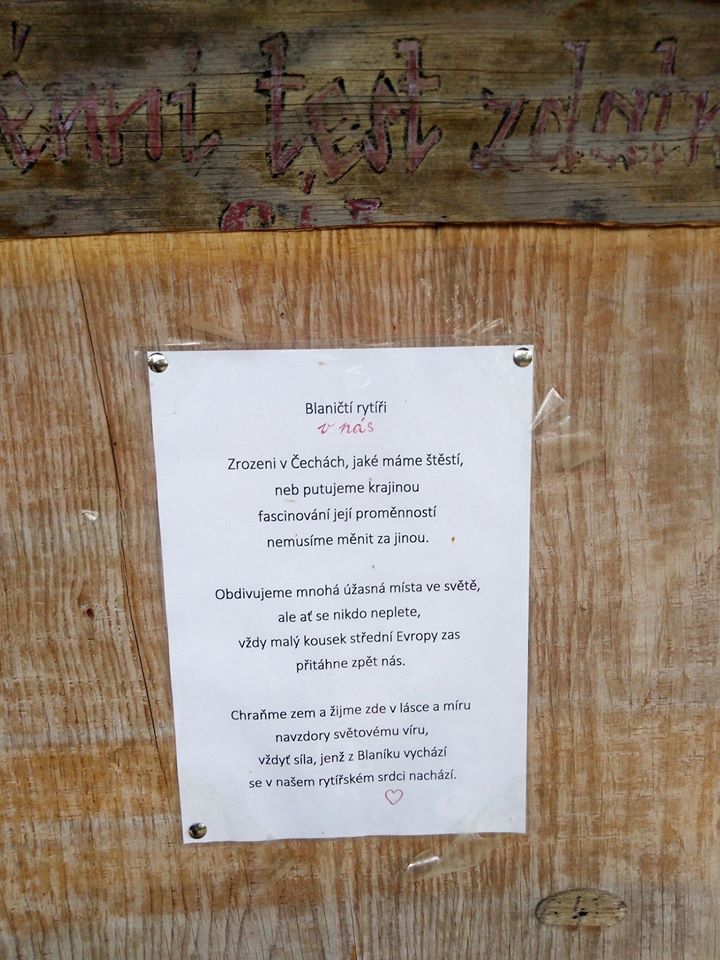 test
Blaničtí rytíři
v nás
Zrozeni v Čechách, jaké máme štěstí,
neb putujeme krajinou
fascinování její proměnností
nemusíme měnit za jinou.
Obdivujeme mnohá úžasná místa ve světě,
ale ať se nikdo neplete,
vždy malý kousek střední Evropy zas
přitáhne zpět nás.
Chraňme zem a žijme zde v lásce a míru
navzdory světovému víru,
vždyť síla, jenž z Blaníku vychází
se v našem rytířském srdci nachází.